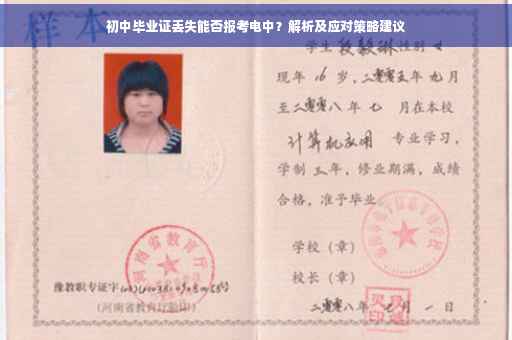 初中毕业证丢失能否报考电中？解析及应对策略建议
样本
学生 段毅琳 性别 女
现年 16 岁，二零零五年 九月
至二零零八年 七 月在本校
计算机应用 专业学习，
学制 三 年，修业期满，成绩
合格，准予毕业
学校（章）
校长（章）
二零零八年 月 一 日
河南省教育厅
豫教职专证字
（河南省教育厅验印）